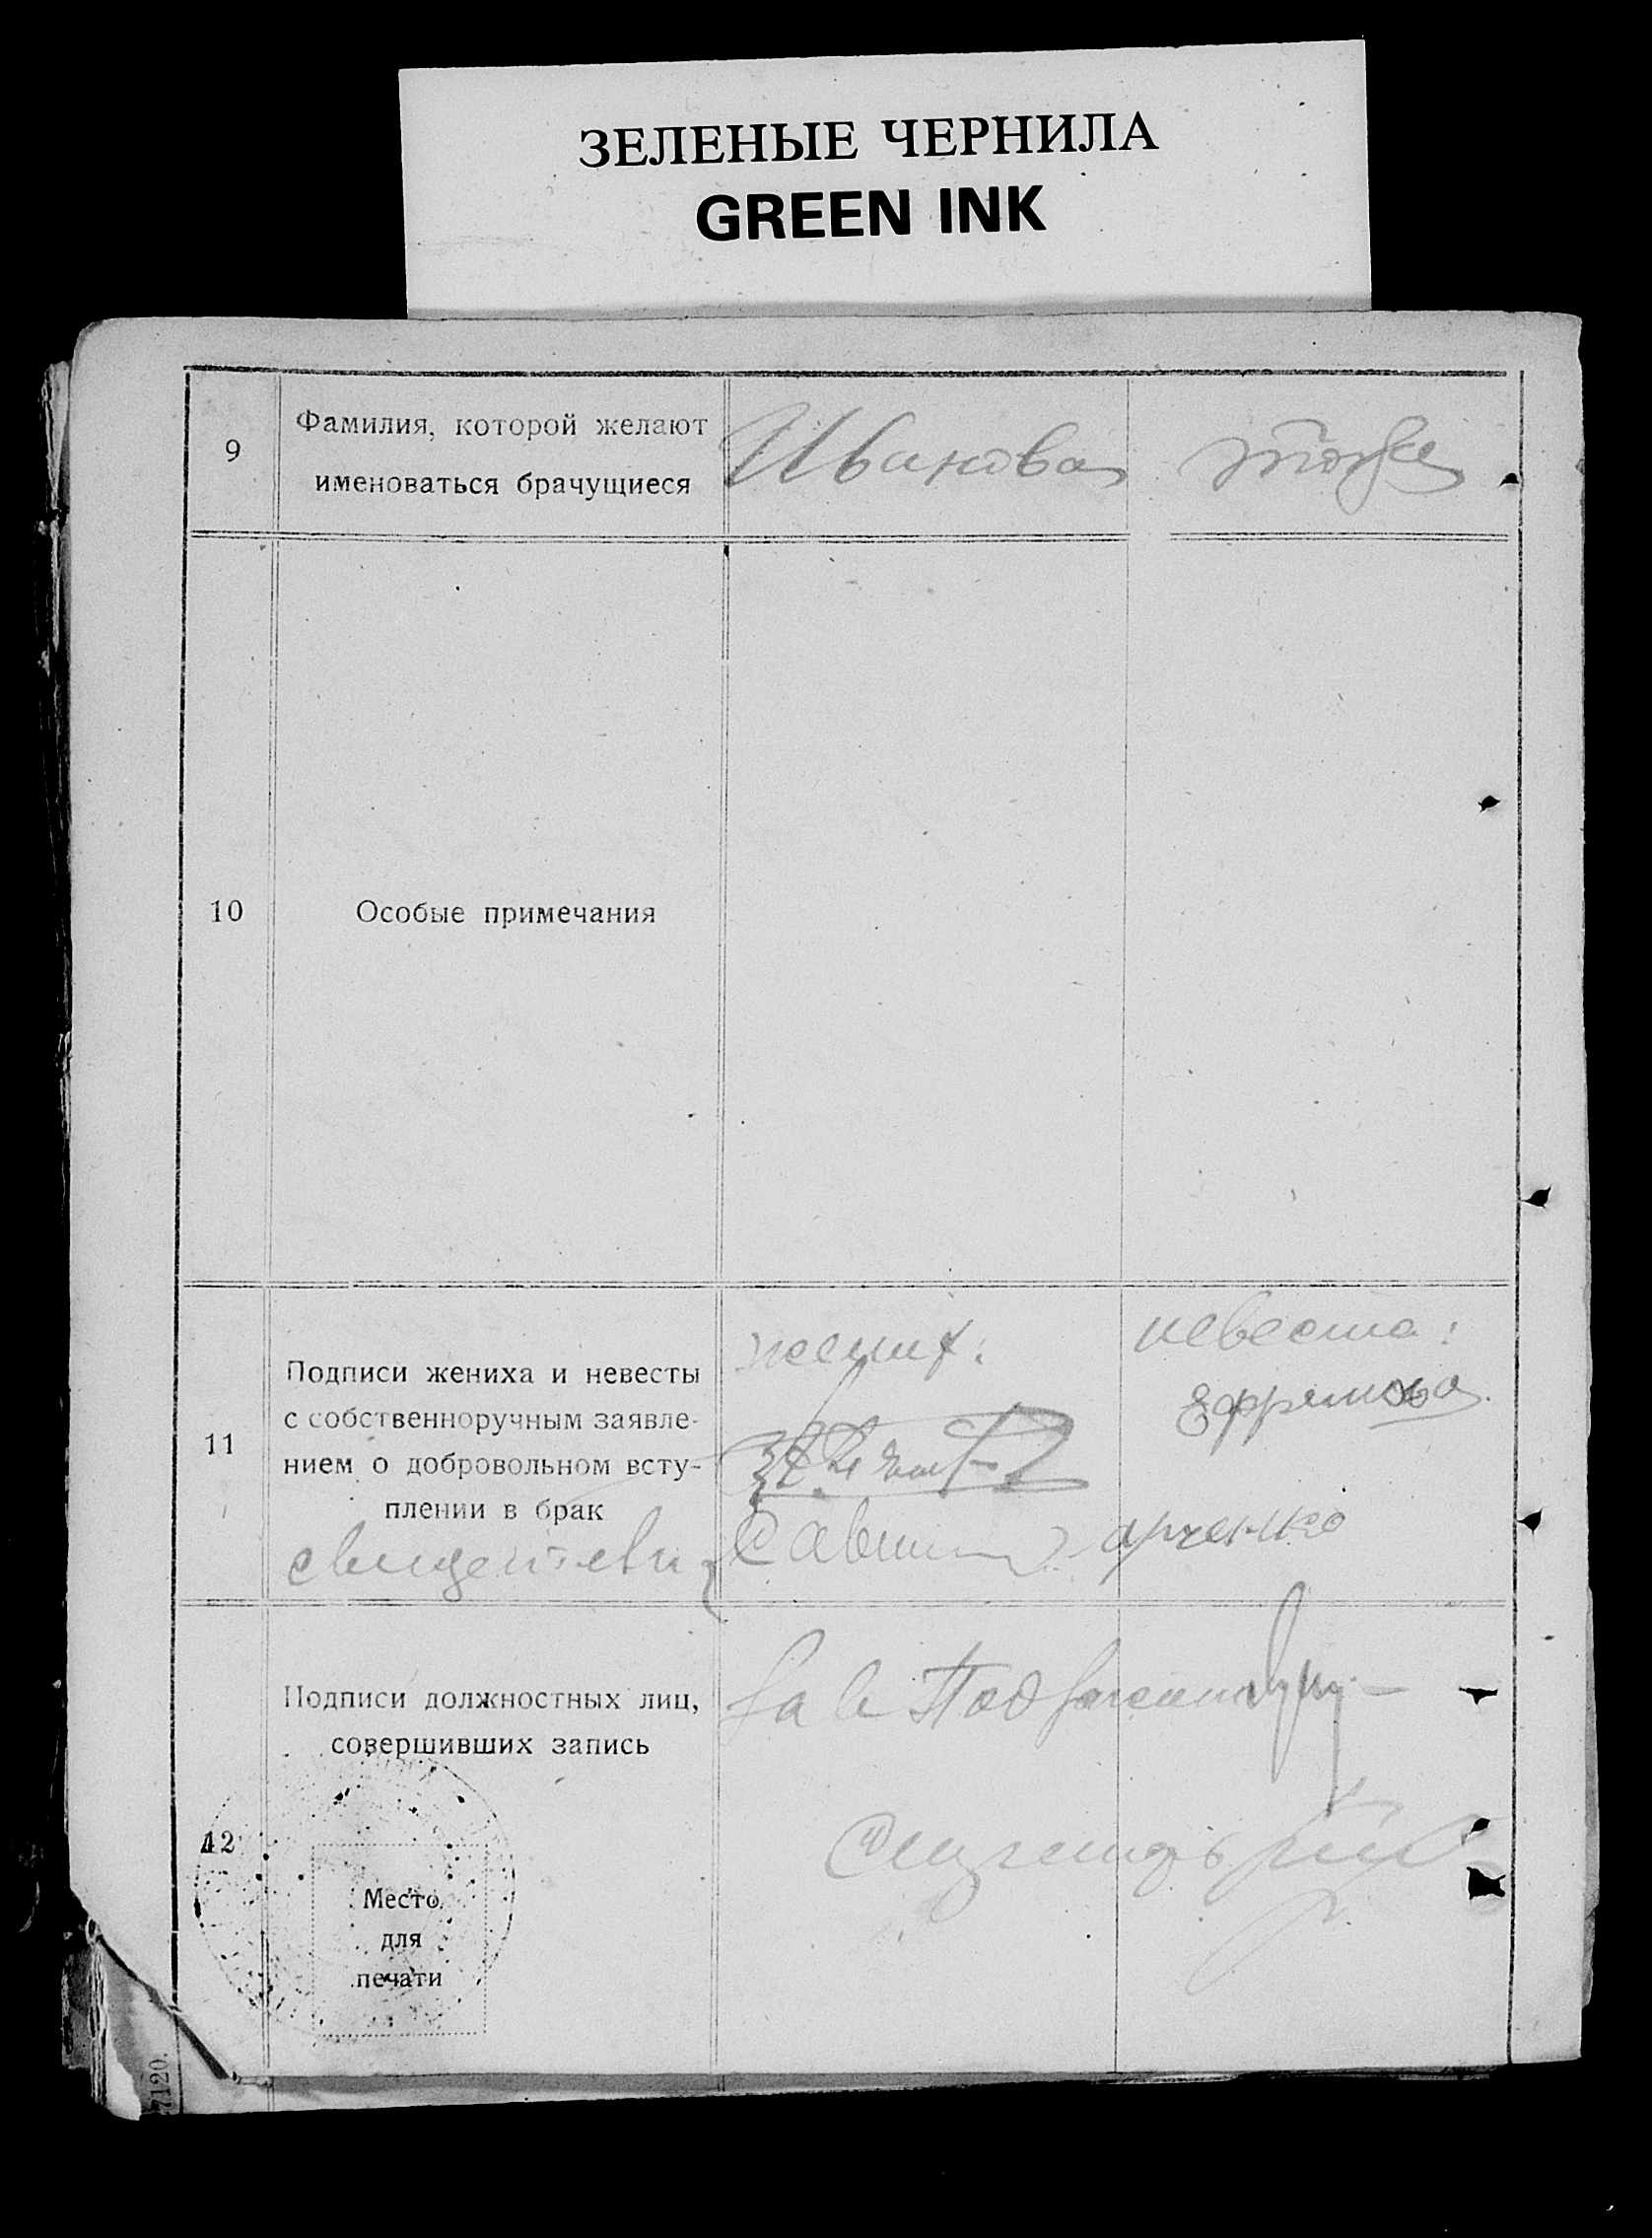 ЗЕЛЕНЫЕ ЧЕРНИЛА
GREEN INK
9
Фамилия, которой желают
именоваться брачущиеся
Иванова
тоже
10
Особые примечания
11
Подписи жениха и невесты
с собственноручным заявле-
нием о добровольном всту-
плении в брак
жених:
невеста:
Ефремова
свидетели
12
Подписи должностных лиц,
совершивших запись
Зав Подотделом
Место
для
печати
7120.